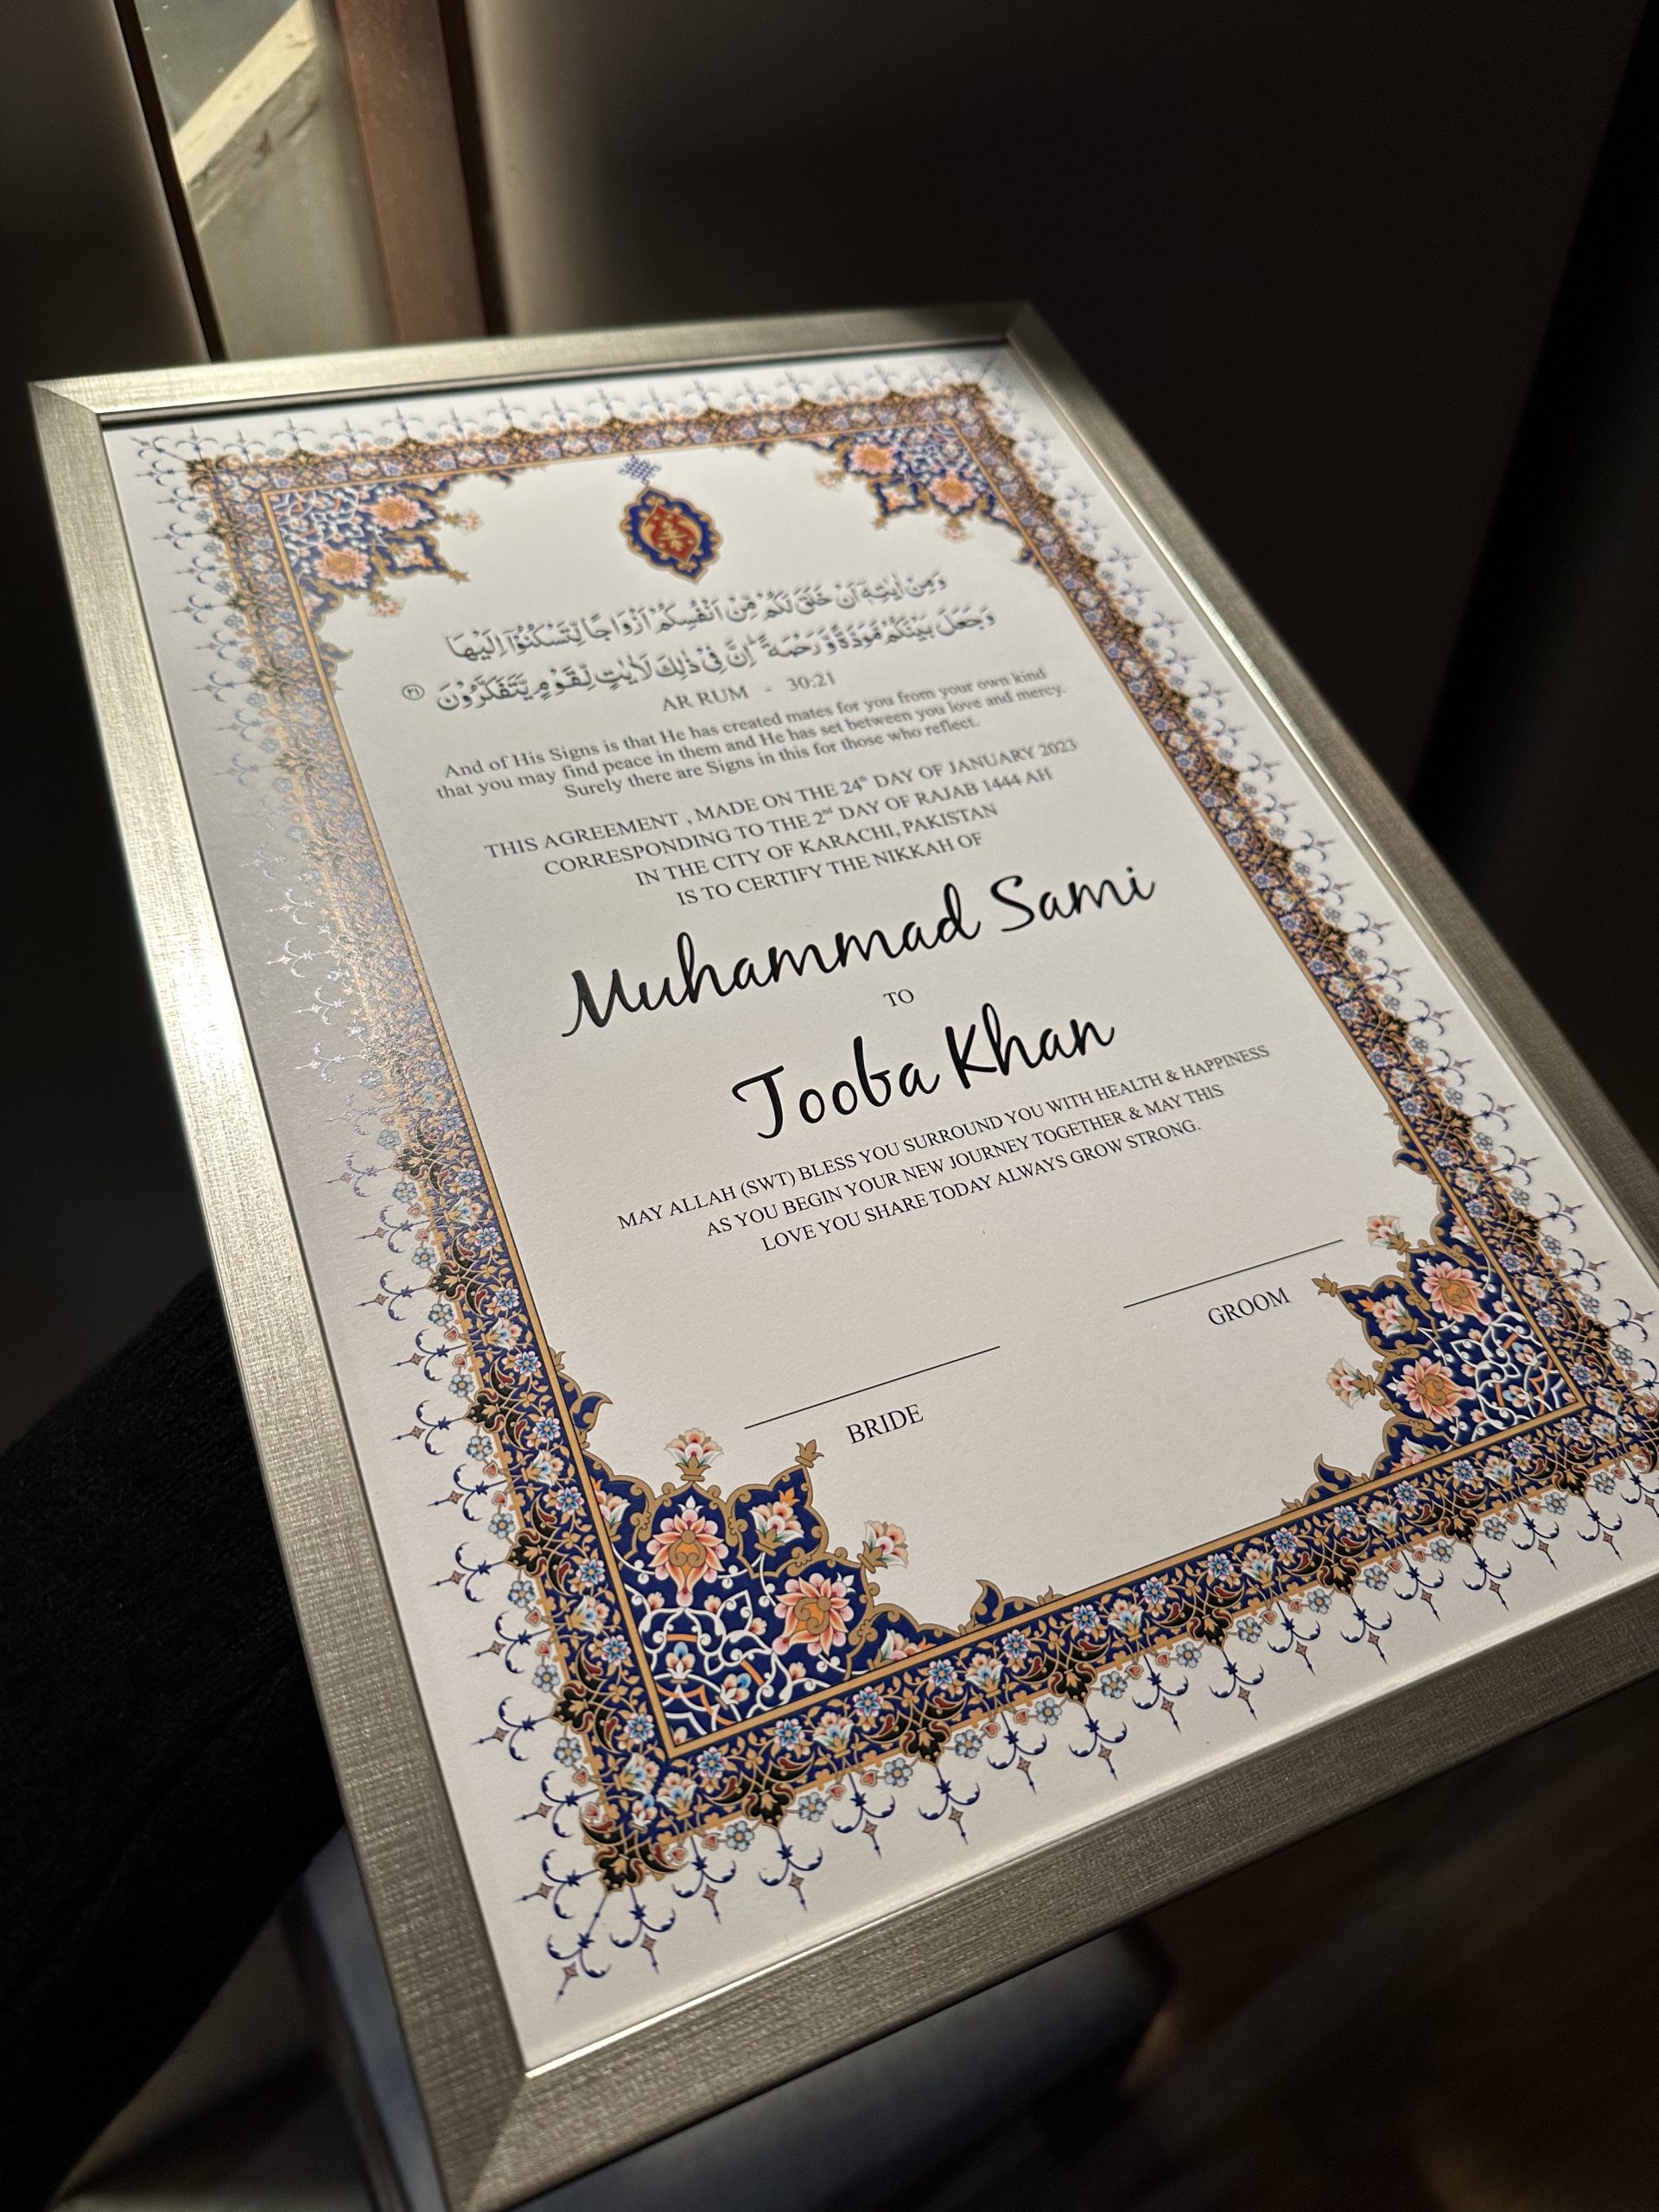 وَمِنْ اٰيٰتِهٖۤ اَنْ خَلَقَ لَكُمْ مِّنْ اَنْفُسِكُمْ اَزْوَاجًا لِّتَسْكُنُوْۤا اِلَيْهَا
وَجَعَلَ بَيْنَكُمْ مَّوَدَّةً وَّرَحْمَةً ؕ اِنَّ فِيْ ذٰلِكَ لَاٰيٰتٍ لِّقَوْمٍ يَّتَفَكَّرُوْنَ ﴿۲۱﴾
AR RUM - 30:21
And of His Signs is that He has created mates for you from your own kind
that you may find peace in them and He has set between you love and mercy.
Surely there are Signs in this for those who reflect.
THIS AGREEMENT , MADE ON THE 24th DAY OF JANUARY 2023
CORRESPONDING TO THE 2nd DAY OF RAJAB 1444 AH
IN THE CITY OF KARACHI, PAKISTAN
IS TO CERTIFY THE NIKKAH OF
Muhammad Sami
TO
Tooba Khan
MAY ALLAH (SWT) BLESS YOU SURROUND YOU WITH HEALTH & HAPPINESS
AS YOU BEGIN YOUR NEW JOURNEY TOGETHER & MAY THIS
LOVE YOU SHARE TODAY ALWAYS GROW STRONG.
GROOM
BRIDE